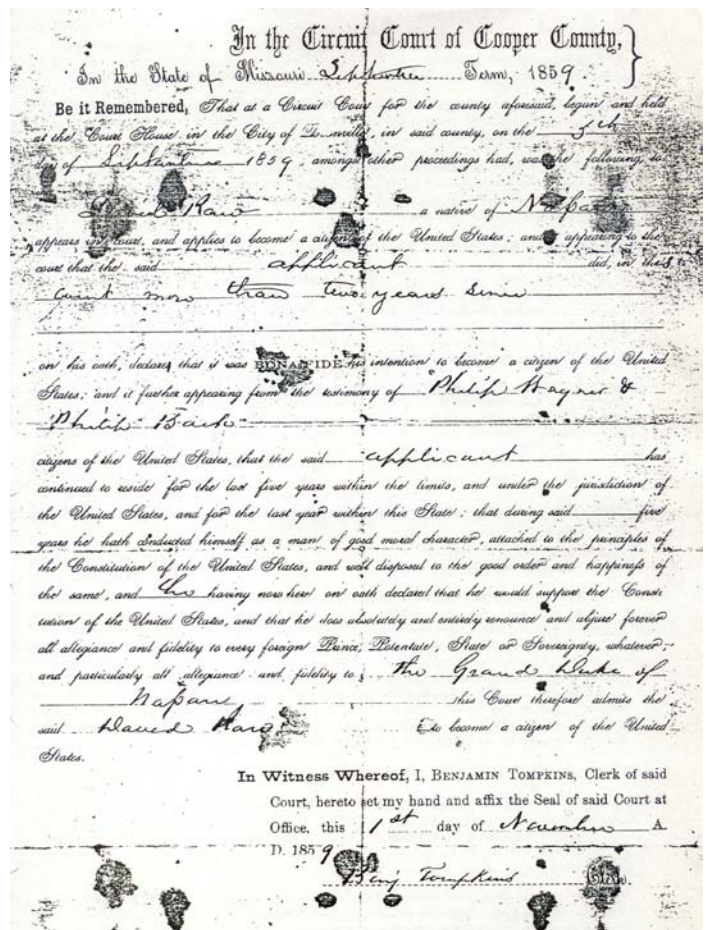 In the Circuit Court of Cooper County,
In the State of Missouri September Term, 1859.
Be it Remembered, That at a Circuit Cour for the county aforesaid, begun and held
at the Court House in the City of Boonville, in said county, on the 5th
day of September 1859, amongst other proceedings had, was the following, to
David Rau a native of Nassau
appears in court, and applies to become a citizen of the United States; and appearing to the
court that the said applicant did, in this
court more than two years since
on his oath, declared that it was BONA FIDE his intention to become a citizen of the United
States; and it further appearing from the testimony of Philip Wagner &
Philip Back
citizens of the United States, that the said applicant has
continued to reside for the last five years within the limits, and under the jurisdiction of
the United States, and for the last year within this State; that during said five
years he hath conducted himself as a man of good moral character, attached to the principles of
the Constitution of the United States, and well disposed to the good order and happiness of
the same, and he having now here on oath declared that he would support the Consti
tution of the United States, and that he does absolutely and entirely renounce and abjure forever
all allegiance and fidelity to every foreign Prince, Potentate, State or Sovereignty, whatever;
and particularly all allegiance and fidelity to the Grand Duke of
Nassau this Court therefore admits the
said David Rau to become a citizen of the United
States.
In Witness Whereof, I, BENJAMIN TOMPKINS, Clerk of said
Court, hereto set my hand and affix the Seal of said Court at
Office, this 1st day of November A.
D. 1859
Benj Tompkins Clerk.